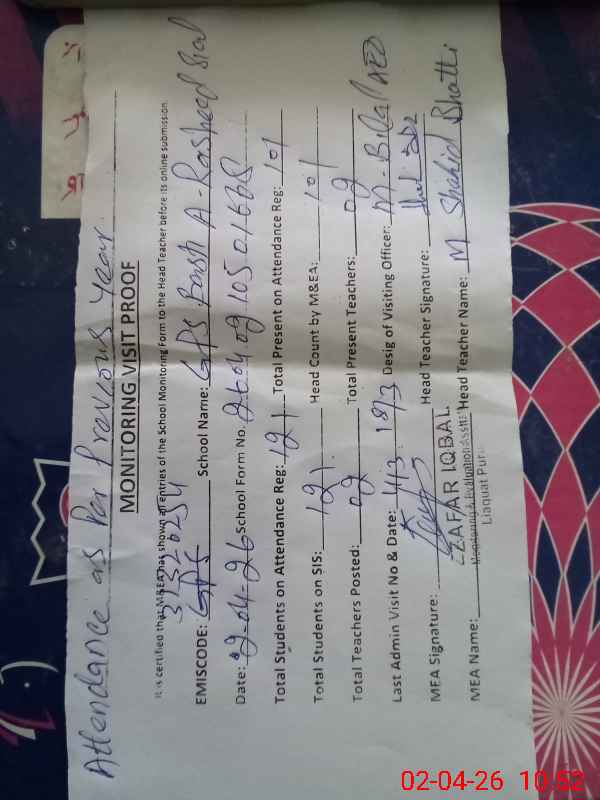 Attendance as Per Previous Year
MONITORING VISIT PROOF
It is certified that M&EA has shown all entries of the School Monitoring Form to the Head Teacher before its online submission.
31320254
EMISCODE: GPS School Name: GPS Basti A-Rasheed Sial
Date: 2-04-26 School Form No. 26040910501668
Total Students on Attendance Reg: 121 Total Present on Attendance Reg: 101
Total Students on SIS: 121 Head Count by M&EA: 101
Total Teachers Posted: 02 Total Present Teachers: 02
Last Admin Visit No & Date: 4/3 18/3 Desig of Visiting Officer: M-Bilal AEO
MEA Signature: Head Teacher Signature:
ZAFAR IQBAL
MEA Name: Monitoring & Evaluation Asstt: Head Teacher Name: M Shahid Bhatti
Liaquat Pur
02-04-26 10:52